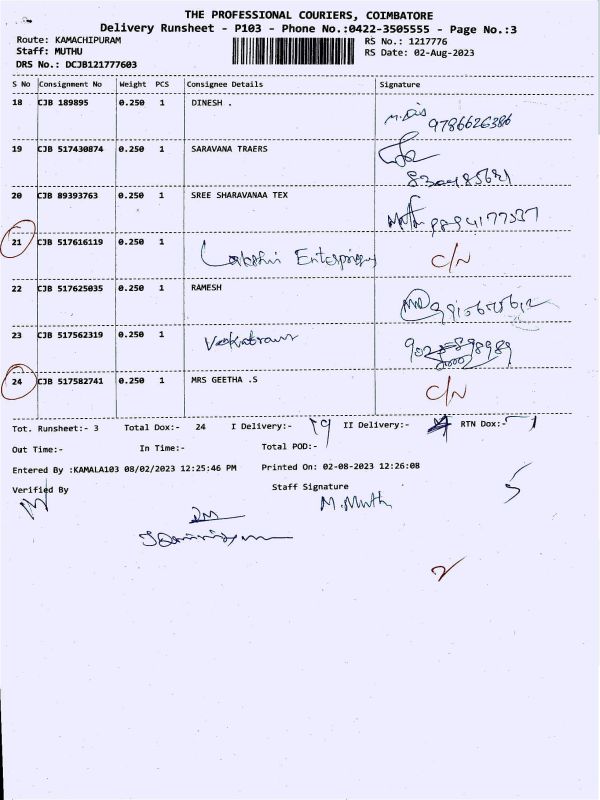 THE PROFESSIONAL COURIERS, COIMBATORE
Delivery Runsheet - P103 - Phone No.:0422-3505555 - Page No.:3
Route: KAMACHIPURAM RS No.: 1217776
Staff: MUTHU RS Date: 02-Aug-2023
DRS No.: DCJB121777603
S No Consignment No Weight PCS Consignee Details Signature
18 CJB 189895 0.250 1 DINESH .
9786626386
19 CJB 517430874 0.250 1 SARAVANA TRAERS
20 CJB 89393763 0.250 1 SREE SHARAVANAA TEX
21 CJB 517616119 0.250 1 Lakshmi Enterprises C/N
22 CJB 517625035 0.250 1 RAMESH
23 CJB 517562319 0.250 1
24 CJB 517582741 0.250 1 MRS GEETHA .S C/N
Tot. Runsheet:- 3 Total Dox:- 24 I Delivery:- 19 II Delivery:- RTN Dox:-
Out Time:- In Time:- Total POD:-
Entered By :KAMALA103 08/02/2023 12:25:46 PM Printed On: 02-08-2023 12:26:08
Verified By Staff Signature
M.Muth
5
2